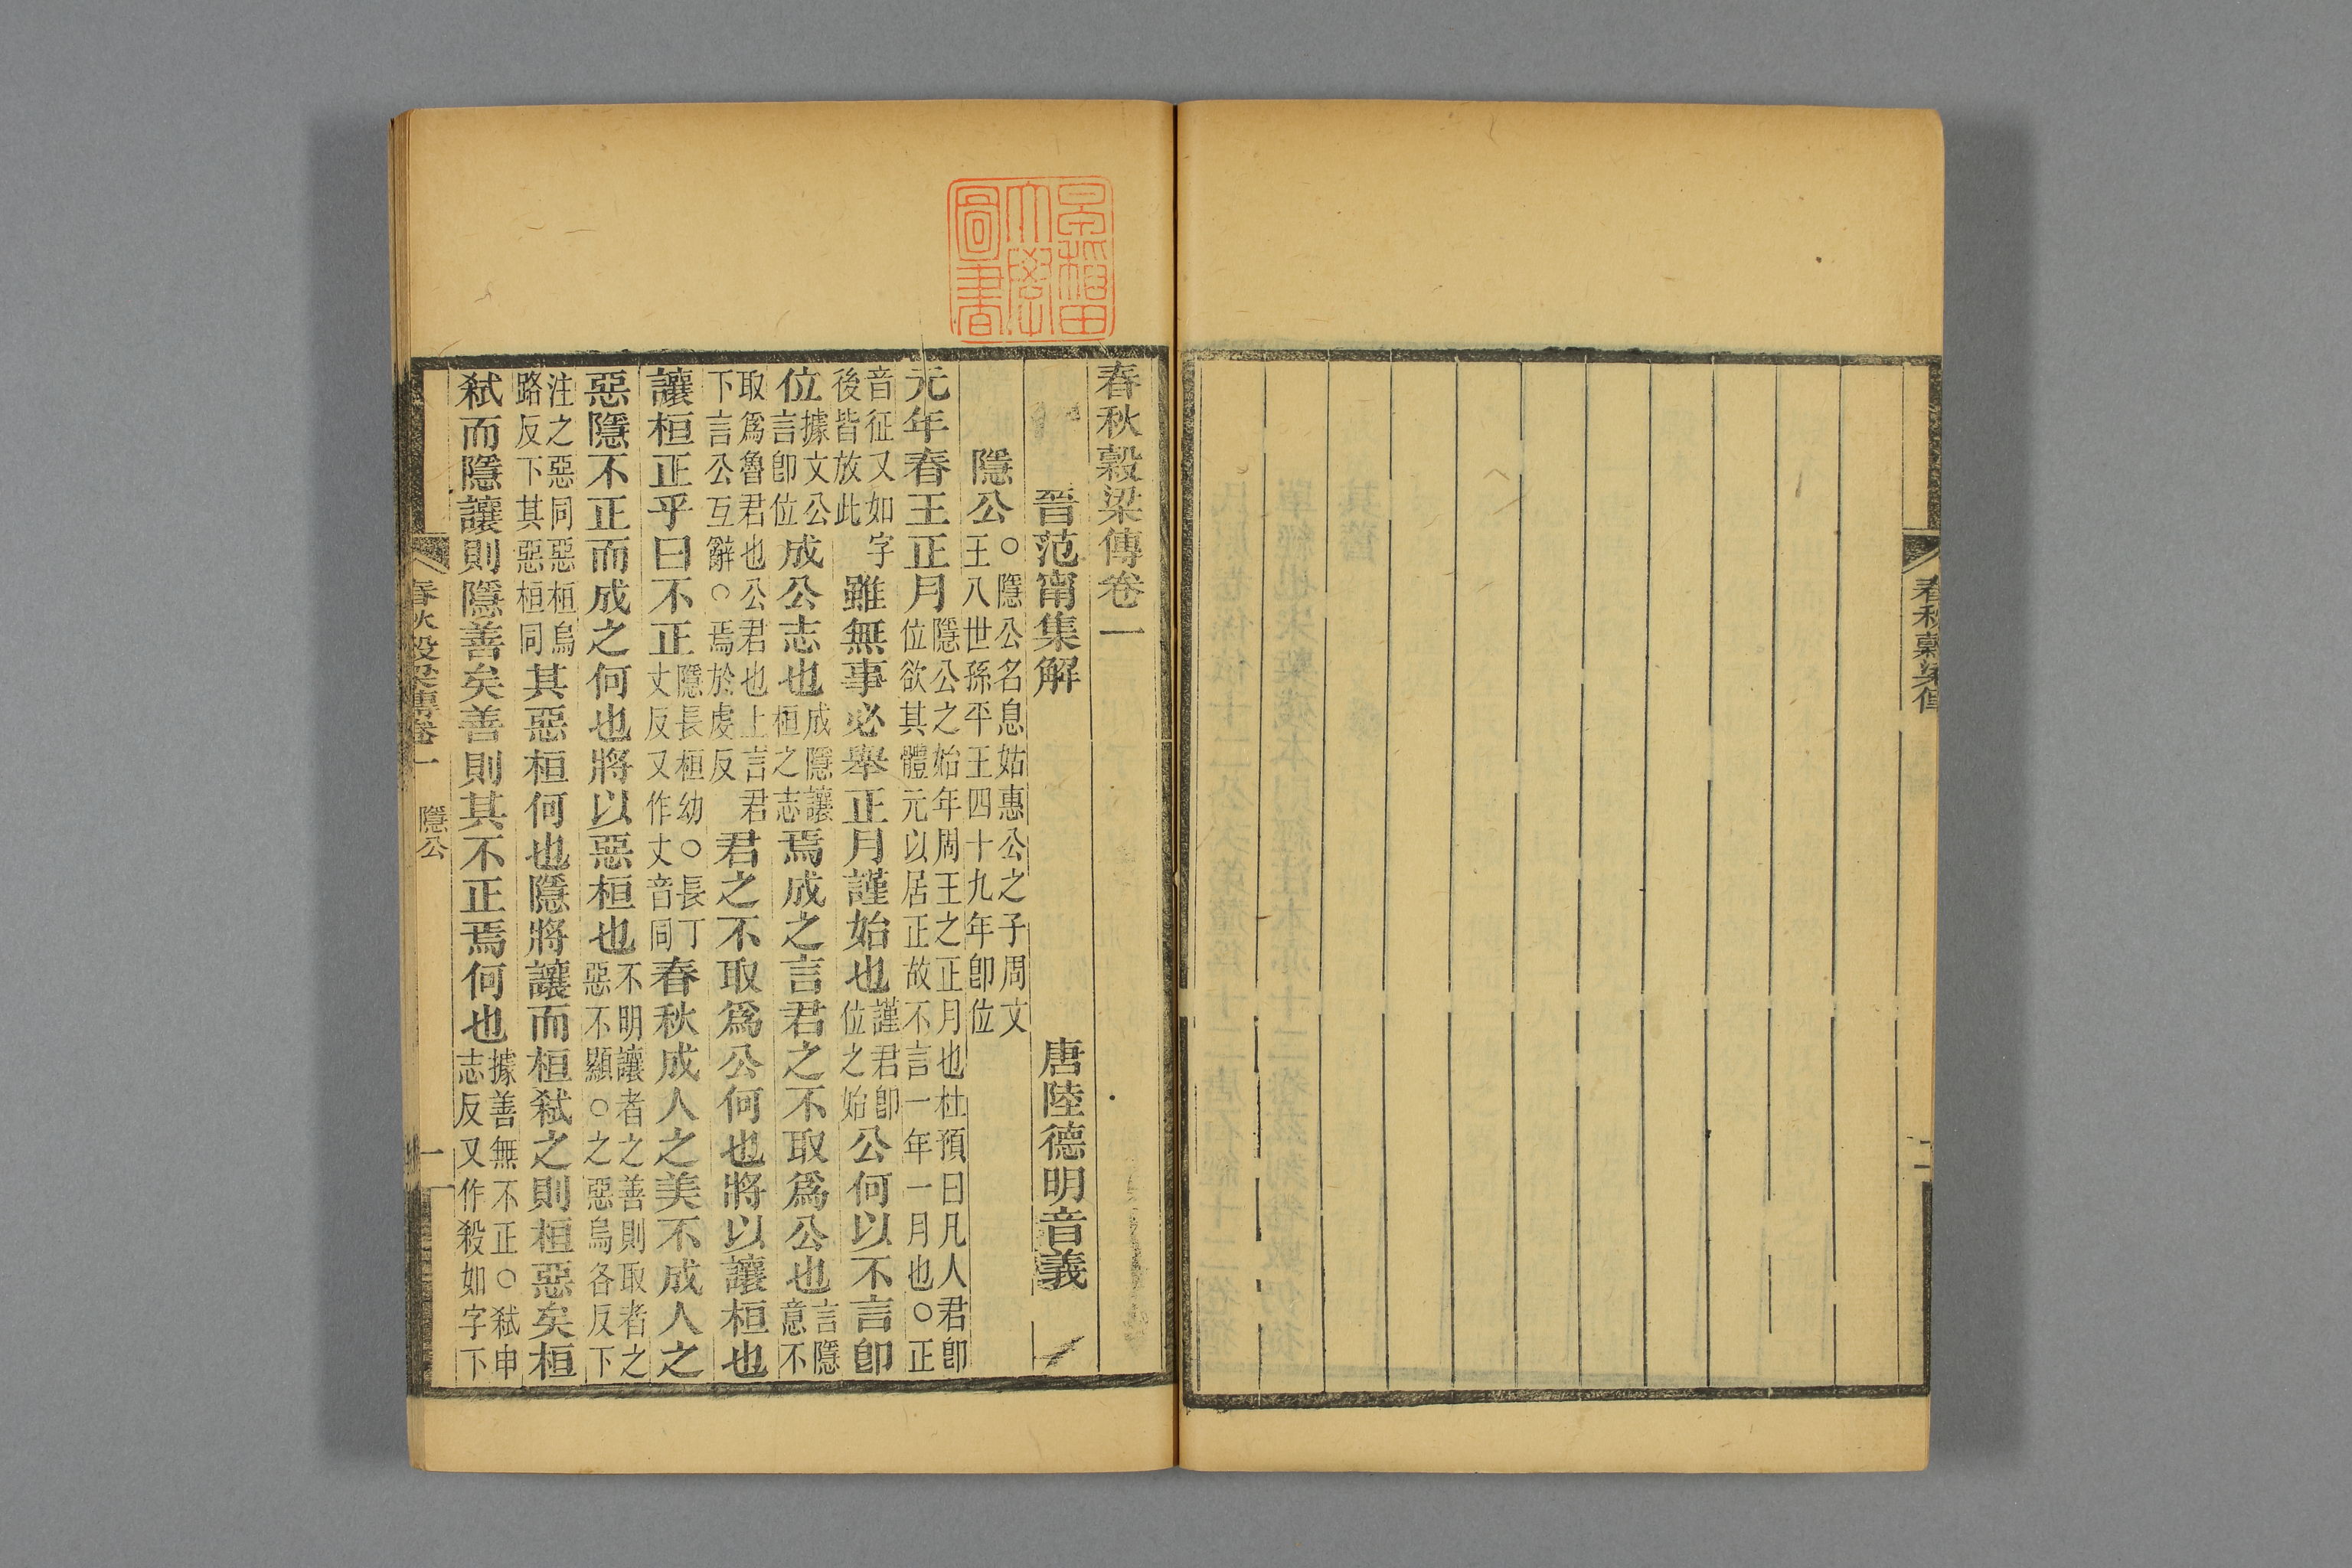 春秋穀梁傳
二
早稻田
大學
圖書
春秋穀梁傳卷一
晉范甯集解　唐陸德明音義
隱公○隱公名息姑惠公之子周文王八世孫平王四十九年卽位
元年春王正月隱公之始年周王之正月也杜預曰凡人君卽位欲其體元以居正故不言一年一月也○正
音征又如字後皆放此雖無事必舉正月謹始也謹君卽位之始公何以不言卽
位據文公言卽位成公志也成隱讓桓之志焉成之言君之不取爲公也言隱意不
取爲魯君也公君也上言君下言公互辭○焉於虔反君之不取爲公何也將以讓桓也
讓桓正乎曰不正隱長桓幼○長丁丈反又作丈音同春秋成人之美不成人之
惡隱不正而成之何也將以惡桓也不明讓者之善則取者之惡不顯○之惡烏各反下
注之惡同惡桓烏路反下其惡桓同其惡桓何也隱將讓而桓弒之則桓惡矣桓
弒而隱讓則隱善矣善則其不正焉何也據善無不正○弒申志反又作殺如字下
春秋穀梁傳卷一　隱公　一